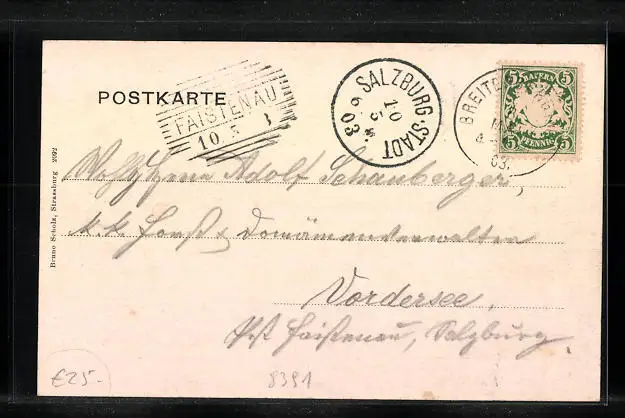 POSTKARTE
FAISTENAU
10 5 3
SALZBURG-STADT
10
5
6 03
BREITE
03.
5 BAYERN 5
5 PFENNIG 5
Wohlgeb. Adolf Schauberger
k.k. Forst & Domänenverwalter
Vordersee,
Post Faistenau, Salzburg.
Bruno Scholz, Strassburg 2092
€25-
8391